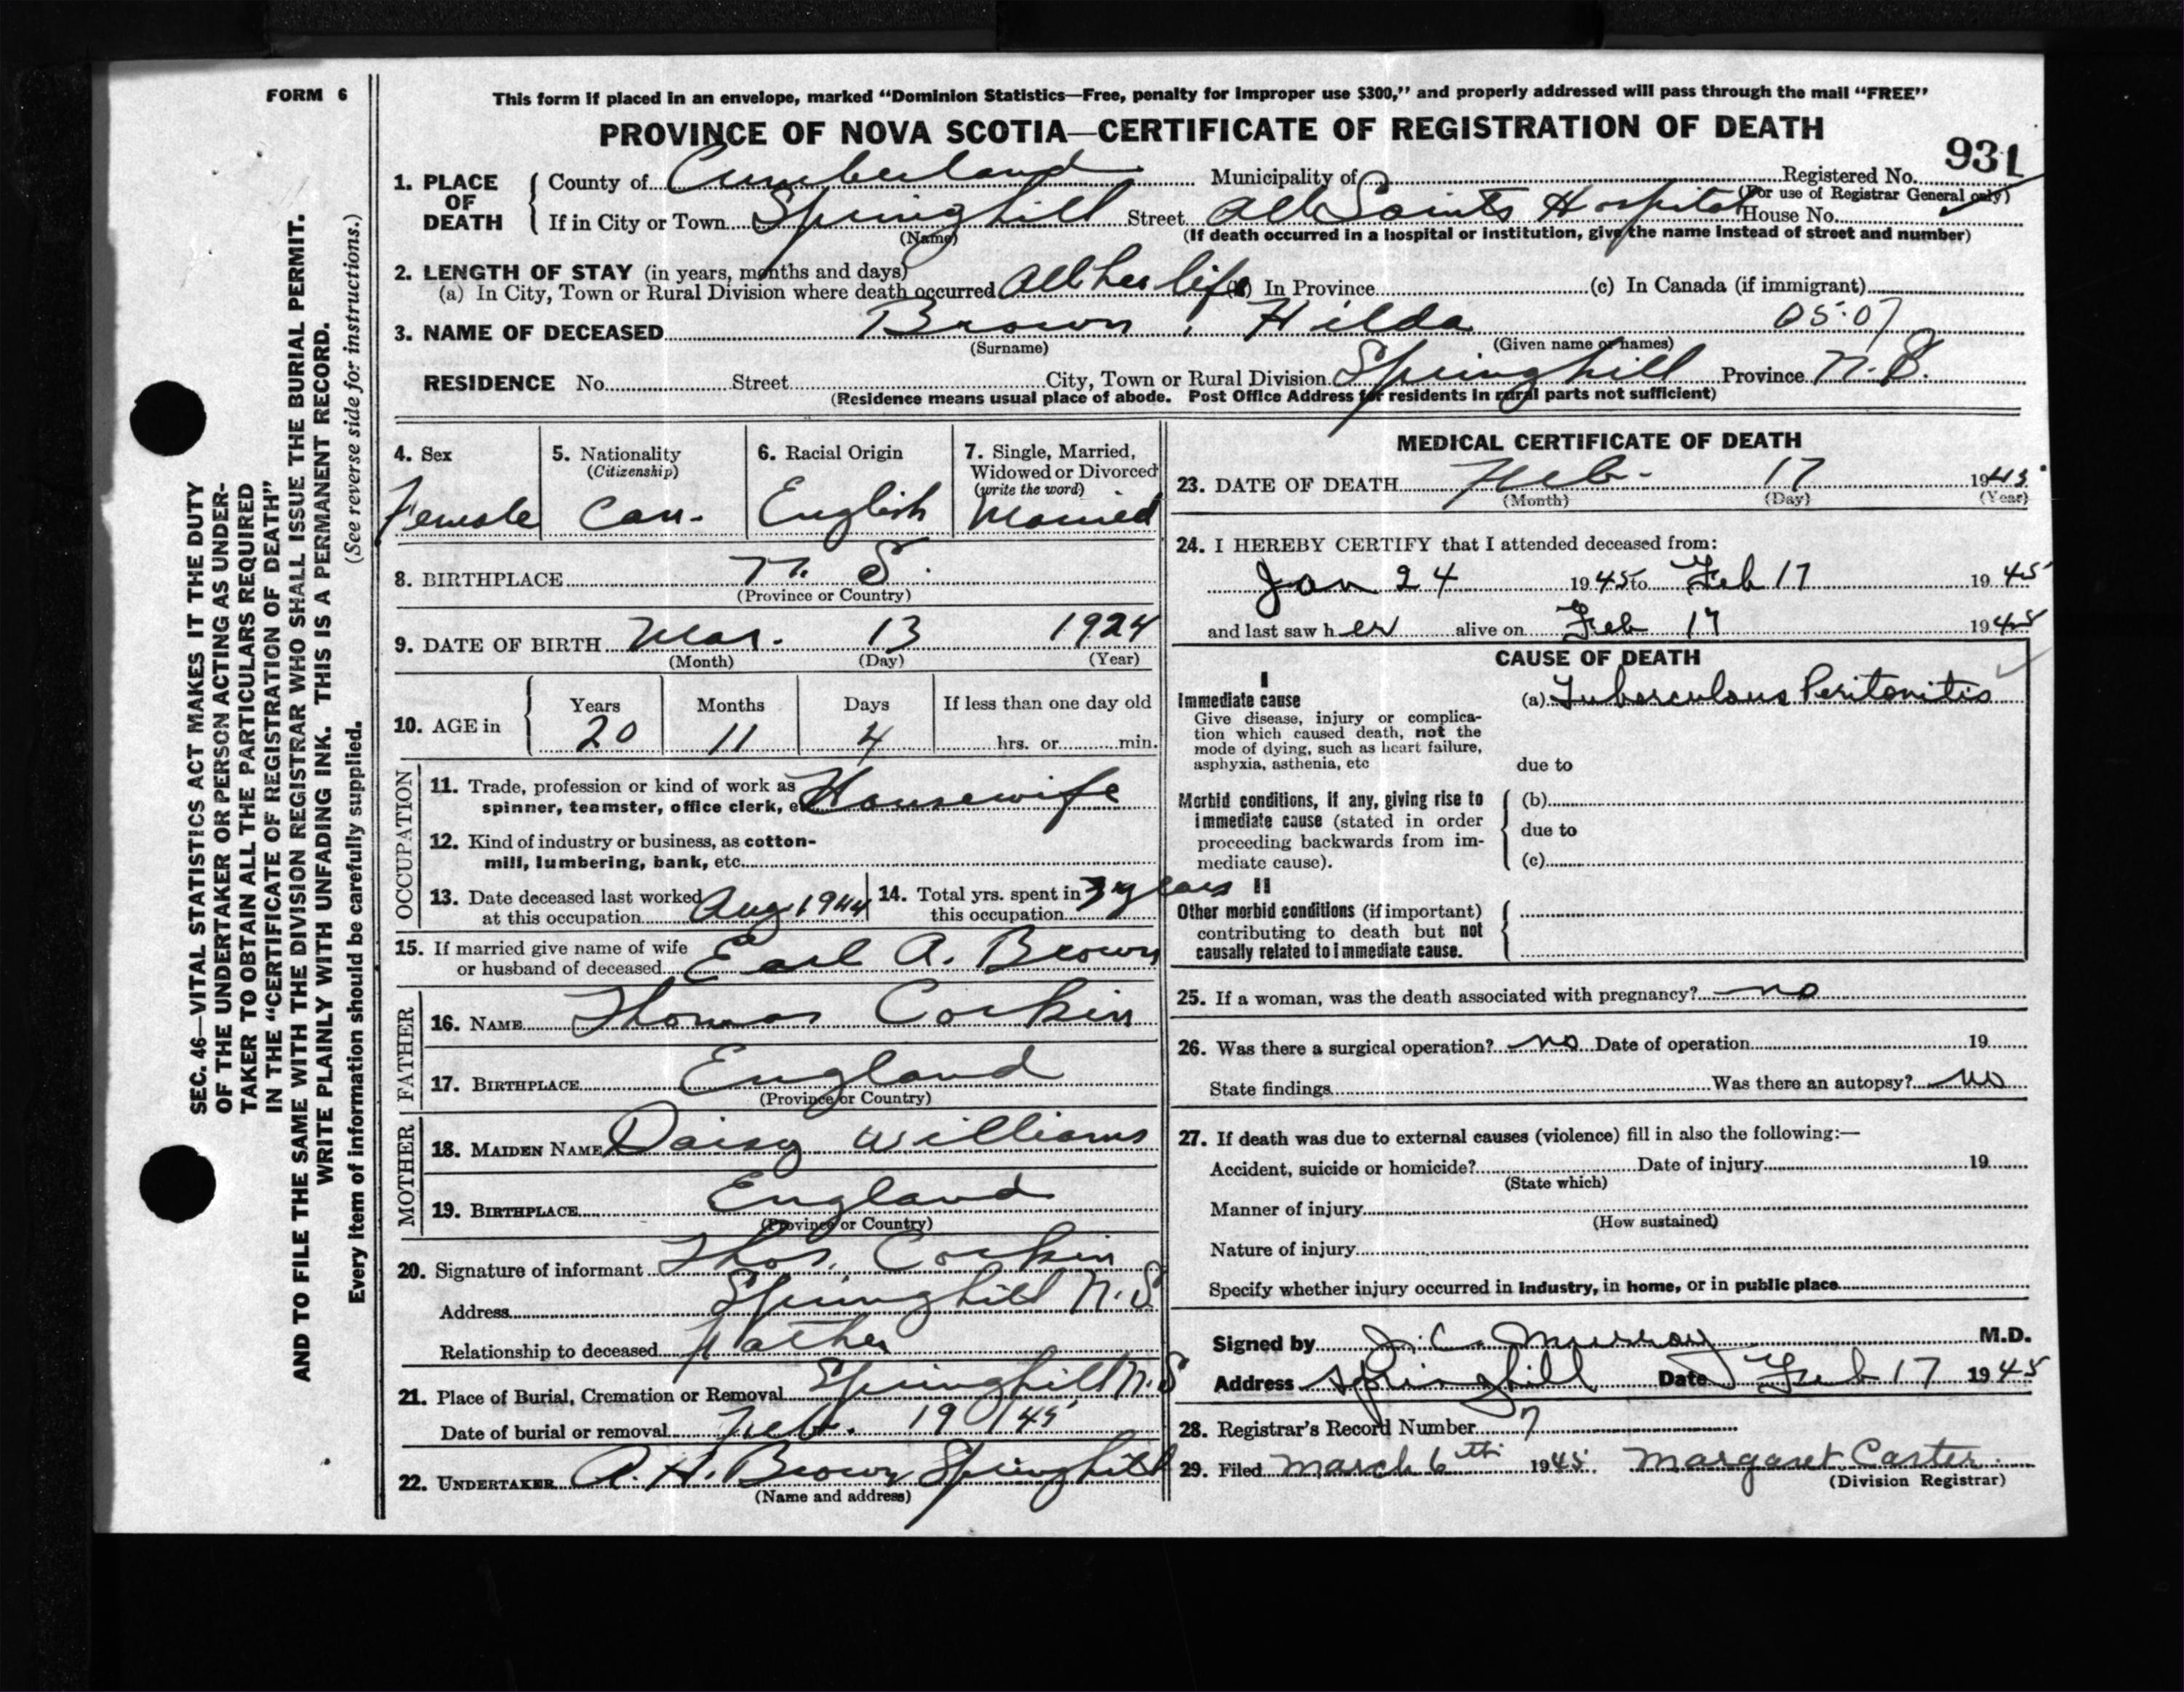 FORM 6
This form if placed in an envelope, marked “Dominion Statistics—Free, penalty for improper use $300,” and properly addressed will pass through the mail “FREE”
PROVINCE OF NOVA SCOTIA—CERTIFICATE OF REGISTRATION OF DEATH
931
1. PLACE OF DEATH County of Cumberland Municipality of Registered No.
(For use of Registrar General only)
If in City or Town Springhill Street All Saints Hospital House No.
(Name) (If death occurred in a hospital or institution, give the name instead of street and number)
2. LENGTH OF STAY (in years, months and days)
(a) In City, Town or Rural Division where death occurred All her life (b) In Province (c) In Canada (if immigrant)
3. NAME OF DECEASED Brown, Hilda 05:07
(Surname) (Given name or names)
RESIDENCE No. Street City, Town or Rural Division Springhill Province N.S.
(Residence means usual place of abode. Post Office Address for residents in rural parts not sufficient)
4. Sex 5. Nationality (Citizenship) 6. Racial Origin 7. Single, Married, Widowed or Divorced (write the word)
Female Can. English Married
8. BIRTHPLACE N. S.
(Province or Country)
9. DATE OF BIRTH Mar. 13 1924
(Month) (Day) (Year)
10. AGE in Years Months Days If less than one day old
20 11 4 hrs. or min.
OCCUPATION
11. Trade, profession or kind of work as
spinner, teamster, office clerk, e Housewife
12. Kind of industry or business, as cotton-
mill, lumbering, bank, etc.
13. Date deceased last worked at this occupation Aug 1944 14. Total yrs. spent in this occupation 3 years
15. If married give name of wife
or husband of deceased Earl A. Brown
FATHER
16. NAME Thomas Corkin
17. BIRTHPLACE England
(Province or Country)
MOTHER
18. MAIDEN NAME Daisy Williams
19. BIRTHPLACE England
(Province or Country)
20. Signature of informant Thos. Corkin
Address Springhill N.S
Relationship to deceased Father
21. Place of Burial, Cremation or Removal Springhill N.S
Date of burial or removal Feb. 19 1945
22. UNDERTAKER A. H. Brown Springhill
(Name and address)
MEDICAL CERTIFICATE OF DEATH
23. DATE OF DEATH Feb- 17 1945
(Month) (Day) (Year)
24. I HEREBY CERTIFY that I attended deceased from:
Jan 24 1945 to Feb 17 1945
and last saw her alive on Feb 17 1945
CAUSE OF DEATH
I
Immediate cause (a) Tuberculous Peritonitis
Give disease, injury or complica-
tion which caused death, not the
mode of dying, such as heart failure,
asphyxia, asthenia, etc due to
Morbid conditions, if any, giving rise to (b)
immediate cause (stated in order due to
proceeding backwards from im-
mediate cause). (c)
II
Other morbid conditions (if important)
contributing to death but not
causally related to immediate cause.
25. If a woman, was the death associated with pregnancy? no
26. Was there a surgical operation? no Date of operation 19
State findings Was there an autopsy? no
27. If death was due to external causes (violence) fill in also the following:—
Accident, suicide or homicide? Date of injury 19
(State which)
Manner of injury
(How sustained)
Nature of injury
Specify whether injury occurred in industry, in home, or in public place
Signed by J. C. Murray M.D.
Address Springhill Date Feb 17 1945
28. Registrar's Record Number 7
29. Filed March 6th 1945. Margaret Carter.
(Division Registrar)
SEC. 46—VITAL STATISTICS ACT MAKES IT THE DUTY
OF THE UNDERTAKER OR PERSON ACTING AS UNDER-
TAKER TO OBTAIN ALL THE PARTICULARS REQUIRED
IN THE “CERTIFICATE OF REGISTRATION OF DEATH”
AND TO FILE THE SAME WITH THE DIVISION REGISTRAR WHO SHALL ISSUE THE BURIAL PERMIT.
WRITE PLAINLY WITH UNFADING INK. THIS IS A PERMANENT RECORD.
Every item of information should be carefully supplied. (See reverse side for instructions.)